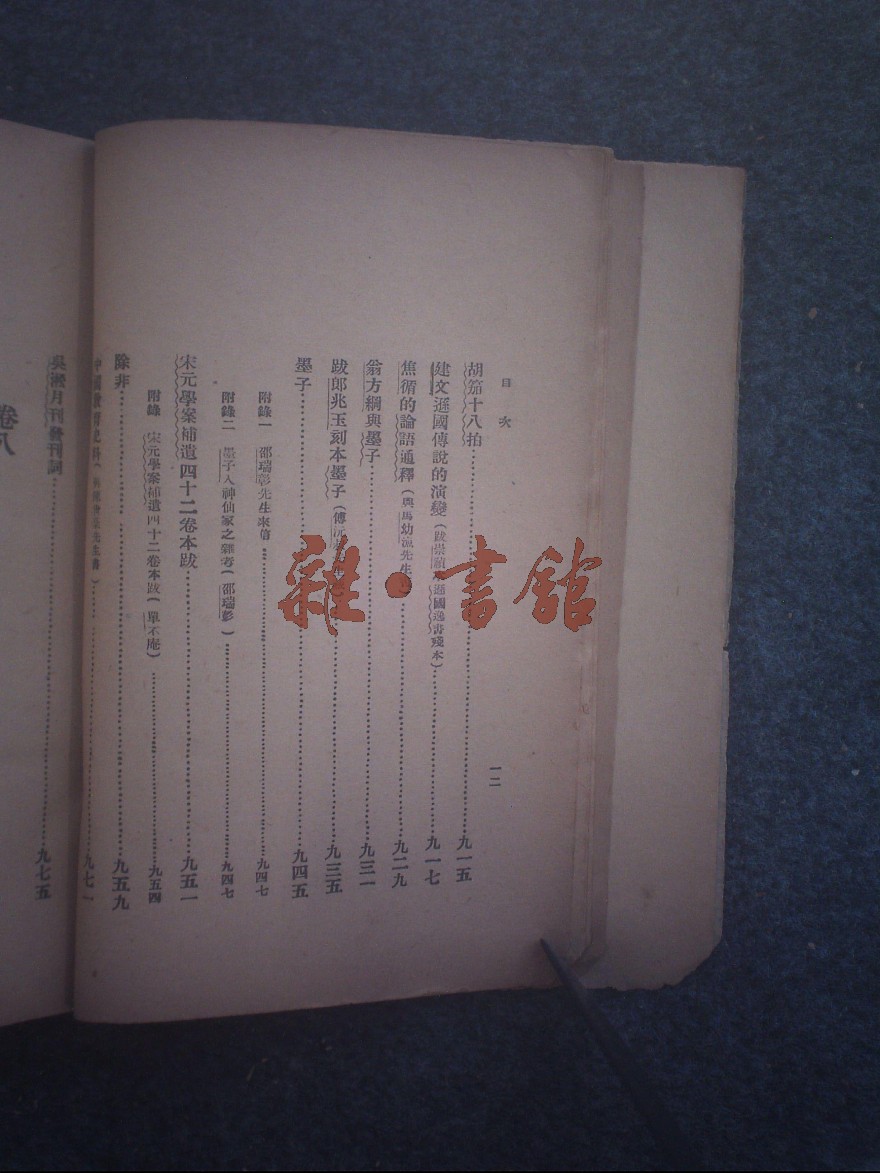 目次
一二
胡笳十八拍 九一五
建文遜國傳說的演變(跋崇禎本遜國逸書殘本) 九一七
焦循的論語通釋(與馬幼漁先生 九二九
翁方綱與墨子 九三一
跋郎兆玉刻本墨子(傅沅 九三五
墨子 九四五
附錄一 邵瑞彭先生來信 九四七
附錄二 墨子入神仙家之雜考(邵瑞彭) 九四七
宋元學案補遺四十二卷本跋 九五一
附錄 宋元學案補遺四十二卷本跋(單不庵) 九五四
除非 九五九
中國 史料( 先生書) 九七一
卷八
吳淞月刊發刊詞 九七五
雜·書館